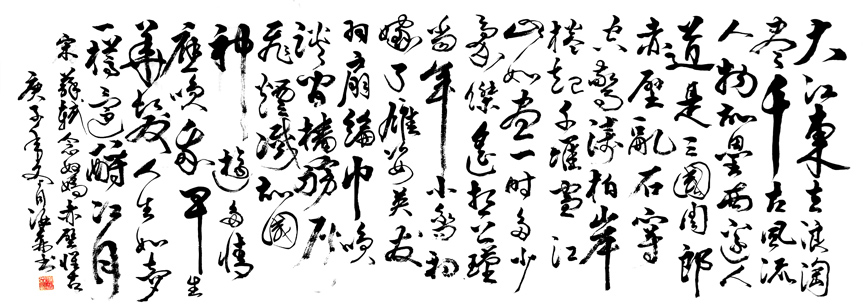 大江東去浪淘
盡千古風流
人物故壘西邊人
道是三國周郎
赤壁亂石穿
空驚濤拍岸
捲起千堆雪江
山如畫一時多少
豪傑遙想公瑾
當年小喬初
嫁了雄姿英發
羽扇綸巾咲
談間檣虜灰
飛煙滅故國
神遊多情
應咲我早生
華髮人生如夢
一樽還酹江月
宋蘇軾念奴嬌赤壁懷古
庚子年